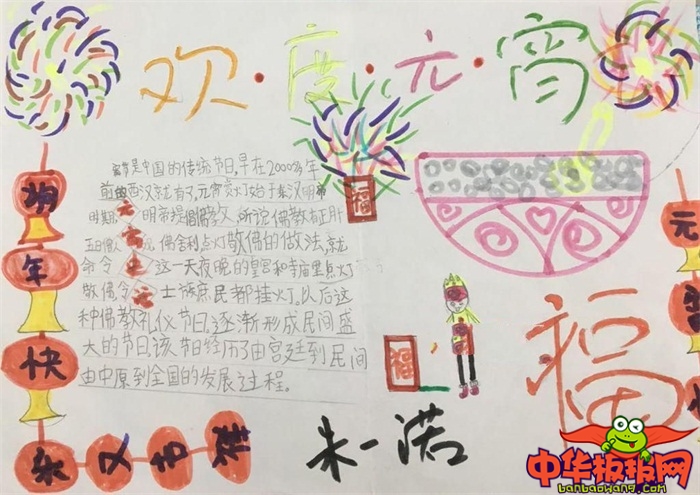 欢·度·元·宵
节是中国的传统节日,早在2000多年
前的西汉就有了,元宵赏灯始于东汉明
时期,明帝提倡佛教,听说佛教有正月
佛舍利点灯敬佛的做法,就
命令这一天夜晚的皇宫和寺庙里点灯
敬佛,令士族庶民都挂灯。以后这
种佛教礼仪节日逐渐形成民间盛
大的节日。该节日经历了由宫廷到民间
由中原到全国的发展过程。
福
福
福
年
快
乐
元
朱一諾
中华板报网
banbaowang.com